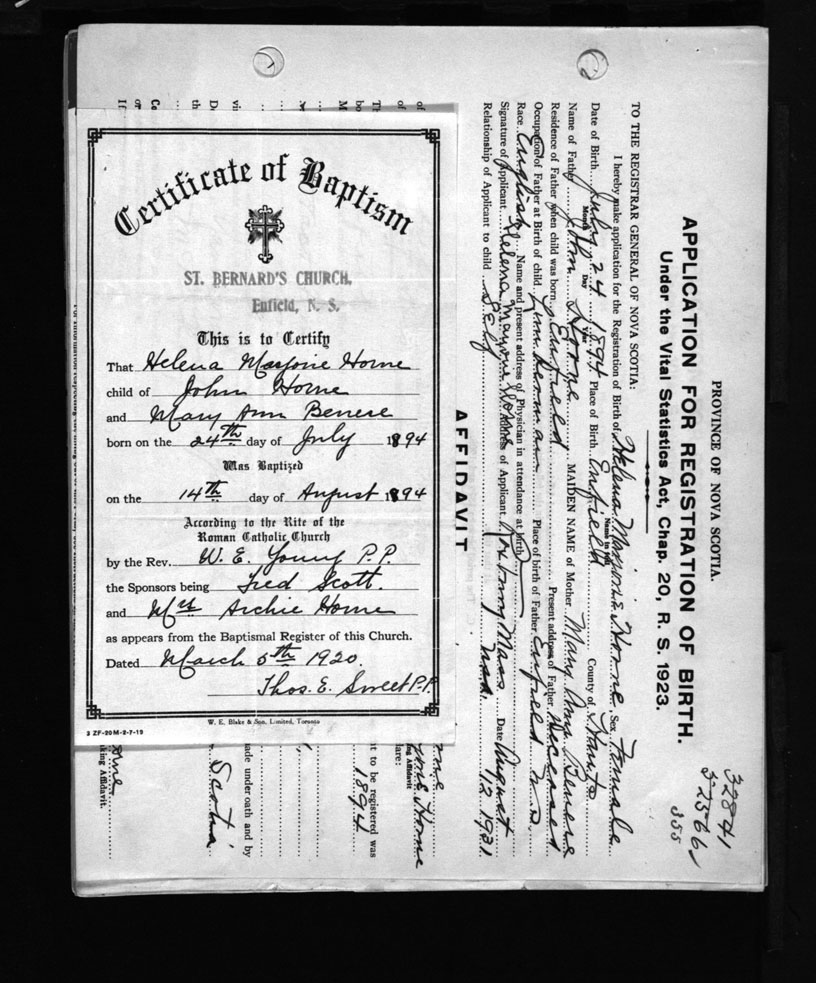 Certificate of Baptism
ST. BERNARD'S CHURCH.
Enfield, N. S.
This is to Certify
That Helena Marjorie Horne
child of John Horne
and Mary Ann Benere
born on the 24th day of July 1894
Was Baptized
on the 14th day of August 1894
According to the Rite of the
Roman Catholic Church
by the Rev. W. E. Young P.P.
the Sponsors being Fred Scott.
and Mrs Archie Horne
as appears from the Baptismal Register of this Church.
Dated March 5th 1920.
Thos. E. Sweet P.P.
W. E. Blake & Son, Limited, Toronto
3 ZF-20M-2-7-19
32841
32566
355
PROVINCE OF NOVA SCOTIA.
APPLICATION FOR REGISTRATION OF BIRTH.
Under the Vital Statistics Act, Chap. 20, R. S. 1923.
TO THE REGISTRAR GENERAL OF NOVA SCOTIA:
I hereby make application for the Registration of Birth of Helena Marjorie Horne Sex Female
Name in full
Date of Birth July 24 1894 Place of Birth Enfield County of Hants
Month Day Year
Name of Father John Horne MAIDEN NAME of Mother Mary Ann Benere
Residence of Father when child was born Enfield Present address of Father Deceased
Occupation of Father at Birth of child Place of birth of Father Enfield N.S.
Race English Name and present address of Physician in attendance at birth
Signature of Applicant Helena Marjorie Horne Address of Applicant Roxbury Mass USA. Date August 12 1931
Relationship of Applicant to child Self
AFFIDAVIT
Horne
king Affidavit
t to be registered was
1894
ade under oath and by
Scotia
king Affidavit.